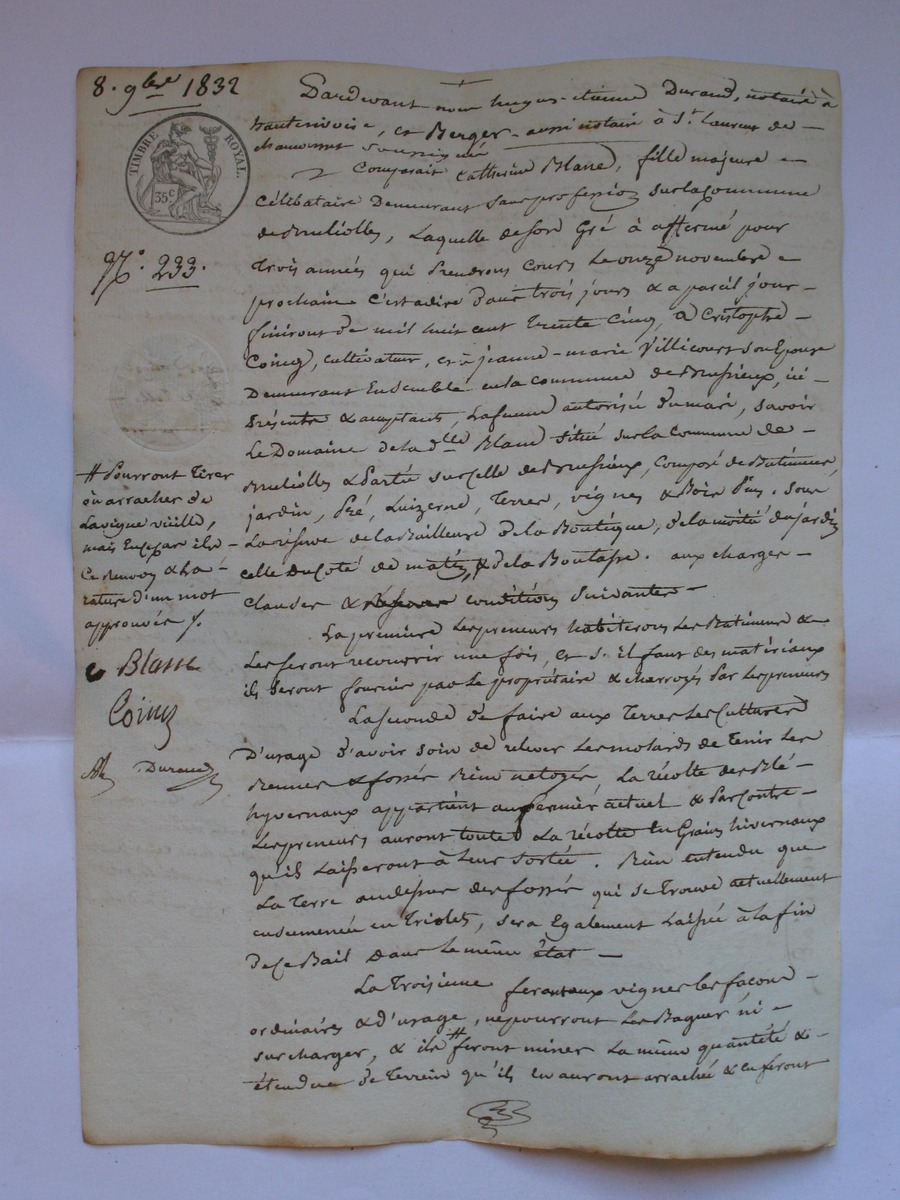 8. 9bre 1832
TIMBRE ROYAL.
35c
N°. 233.
Pardevant nous hugues-etienne Durand, notaire à
hauterivoire, et Berger aussi notaire à St. Laurent de-
chamousset soussignés
Comparait Catherine Blanc, fille majeure
Célibataire Demeurant sans profession sur la Commune
de Brulioles, Laquelle de son Gré à affermé pour
trois années qui Prendrons Cours le onze novembre
prochain C'est adire dans trois jours & a pareil jour
finiront de mil huit cent trente Cinq, a Cristophe
Coing, cultivateur, et à jeanne-marie Villicourt son Epouse
Demeurant Ensemble en la commune de Brussieux, ici
Présents & acceptants, La femme autorisée du mari, savoir
Le Domaine de la dlle Blanc situé sur la Commune de-
Brulioles & Partie sur Celle de Brussieux, Composé de Batimens,
jardin, Pré, Luizerne, Terres, vignes & Bois Pins. Sous
La réserve de la Bailleuse de la Boutique, de la moitié du jardin
celle Du Coté de matin, & de la Boutasse. aux charges-
clauses & réserves conditions Suivantes-
La première Les preneurs habiterons Les Batimens &
Les feront recouvrir une fois, et s'il faut des matériaux
ils Seront fournis par Le propriétaire & charroyés Par Les preneurs
La seconde De faire aux Terres Les Cultures
D'usage D'avoir soin de relever Les motards de Tenir Les
& fossés Bien netoyés La récolte des Blé-
hyvernaux appartient au fermier actuel & Par Contre-
Les preneurs auront toute La récolte En Grains hivernaux
qu'ils Laisseront à Leur Sortie. Bien entendu que
La Terre au dessus des fossés qui se Trouve actuellement
ensemencée en Triolet, sera Egalement Laissée à la fin
De Ce Bail Dans Le même état-
La Troisième feront aux vignes les façons-
ordinaires & d'usage, ne pourront Les Baguer ni-
surcharger, & ils # feront miner La même quantité &-
étendue De Terrein qu'ils en auront arraché & en feront
# Pourront Tirer
ou arracher de
La vigne vieille,
mais En ce cas ils-
Ce renvoy & La
rature d'un mot
approuvés.
C Blanc
Coing
Durand